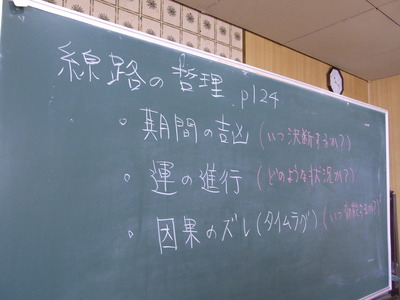 線路の哲理 p124
・期間の吉凶(いつ決断するか?)
・運の進行(どのような状況か?)
・因果のズレ(タイムラグ)(いつ